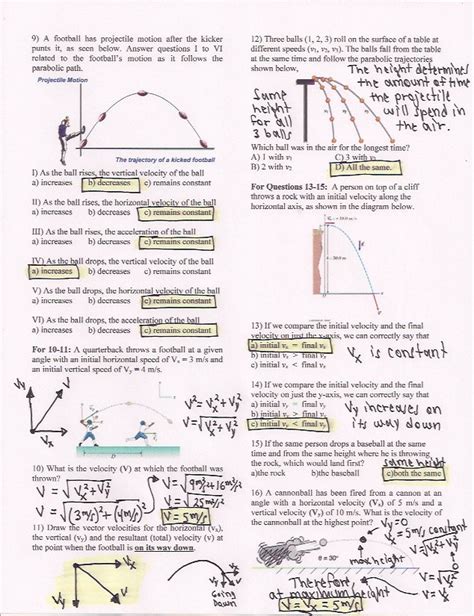 9) A football has projectile motion after the kicker
punts it, as seen below. Answer questions I to VI
related to the football's motion as it follows the
parabolic path.
Projectile Motion
The trajectory of a kicked football
I) As the ball rises, the vertical velocity of the ball
a) increases b) decreases c) remains constant
II) As the ball rises, the horizontal velocity of the ball
a) increases b) decreases c) remains constant
III) As the ball rises, the acceleration of the ball
a) increases b) decreases c) remains constant
IV) As the ball drops, the vertical velocity of the ball
a) increases b) decreases c) remains constant
V) As the ball drops, the horizontal velocity of the ball
a) increases b) decreases c) remains constant
VI) As the ball drops, the acceleration of the ball
a) increases b) decreases c) remains constant
For 10-11: A quarterback throws a football at a given
angle with an initial horizontal speed of Vx = 3 m/s and
an initial vertical speed of Vy = 4 m/s.
Vy V
Vx
V² = Vx² + Vy²
V = √Vx² + Vy²
D
10) What is the velocity (V) at which the football was
thrown?
V = √Vx² + Vy²
V = √(3m/s)² + (4m/s)²
V = √9m²/s² + 16m²/s²
V = √25m²/s²
V = 5m/s
11) Draw the vector velocities for the horizontal (vx),
vertical (vy) and the resultant (total) velocity (v) at
the point when the football is on its way down.
Vx
Vy V
Vy
Going
Down
Vx
12) Three balls (1, 2, 3) roll on the surface of a table at
different speeds (v1, v2, v3). The balls fall from the table
at the same time and follow the parabolic trajectories
shown below,
The height determines
the amount of time
the projectile
will spend in
the air.
Same
height
for all
3 balls
Which ball was in the air for the longest time?
A) 1 with v1 C) 3 with v3
B) 2 with v2 D) All the same.
For Questions 13-15: A person on top of a cliff
throws a rock with an initial velocity along the
horizontal axis, as shown in the diagram below.
13) If we compare the initial velocity and the final
velocity on just the x-axis, we can correctly say that
a) initial vx = final vx
b) initial vx < final vx
c) initial vx > final vx
Vx is constant
14) If we compare the initial velocity and the final
velocity on just the y-axis, we can correctly say that
a) initial vy = final vy
b) initial vy < final vy
c) initial vy > final vy
Vy increases on
its way down
15) If the same person drops a baseball at the same
time and from the same height where he is throwing
the rock, which would land first?
same height
a)the rock b)the baseball c)both the same
16) A cannonball has been fired from a cannon at an
angle with a horizontal velocity (Vx) of 5 m/s and a
vertical velocity (Vy) of 10 m/s. What is the velocity of
the cannonball at the highest point?
Vy=0
Vx = 5m/s constant
V = √Vx² + Vy²
V = Vx
θ = 30°
max height
Therefore,
at maximum height
V = Vx = 5m/s